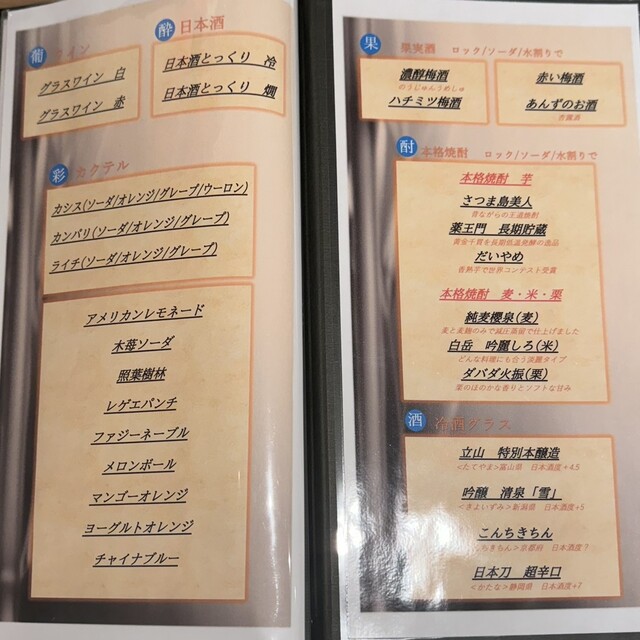 葡 ワイン
グラスワイン 白
グラスワイン 赤
酔 日本酒
日本酒とっくり 冷
日本酒とっくり 燗
彩 カクテル
カシス(ソーダ/オレンジ/グレープ/ウーロン)
カンパリ(ソーダ/オレンジ/グレープ)
ライチ(ソーダ/オレンジ/グレープ)
アメリカンレモネード
木苺ソーダ
照葉樹林
レゲエパンチ
ファジーネーブル
メロンボール
マンゴーオレンジ
ヨーグルトオレンジ
チャイナブルー
果 果実酒 ロック/ソーダ/水割りで
濃醇梅酒
のうじゅんうめしゅ
ハチミツ梅酒
赤い梅酒
あんずのお酒
酎 本格焼酎 ロック/ソーダ/水割りで
本格焼酎 芋
さつま島美人
昔ながらの王道焼酎
薬王門 長期貯蔵
黄金千貫を長期低温発酵の逸品
だいやめ
香熟芋で世界コンテスト受賞
本格焼酎 麦・米・栗
純麦櫻泉(麦)
麦と麦麹のみで減圧蒸留で仕上げました
白岳 吟麗しろ(米)
どんな料理にも合う淡麗タイプ
ダバダ火振(栗)
栗のほのかな香りとソフトな甘み
酒 冷酒グラス
立山 特別本醸造
<たてやま>富山県 日本酒度+4.5
吟醸 清泉「雪」
<きよいずみ>新潟県 日本酒度+5
こんちきちん
ちきちん>京都府 日本酒度?
日本刀 超辛口
<かたな>静岡県 日本酒度+7